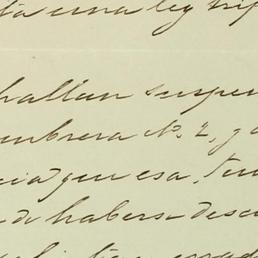 ta una ley
hallan suspen
umbrera No. 2, y a
cia que esa,
de haberse desc